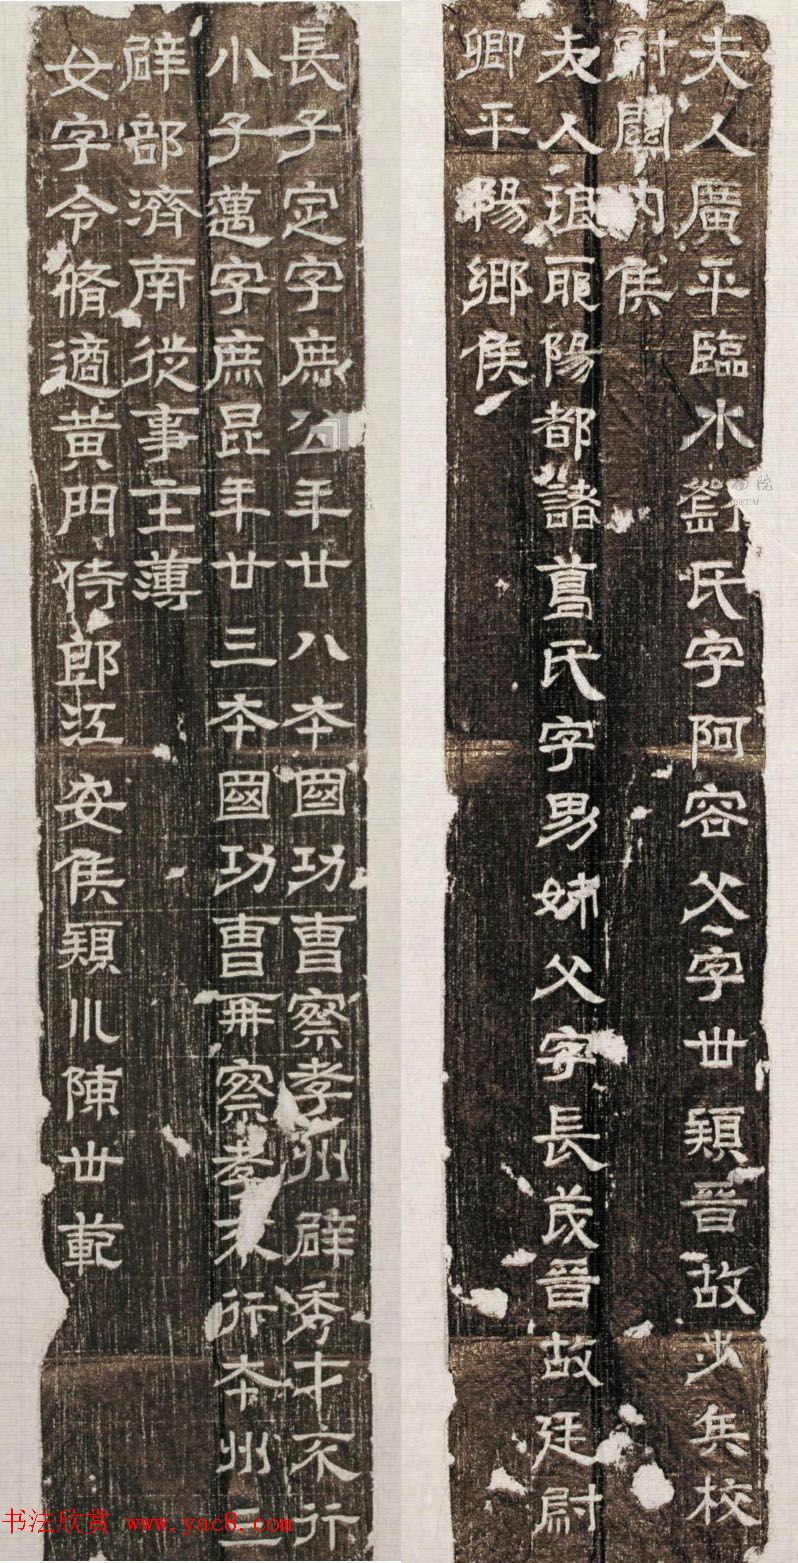 夫人廣平臨水劉氏字阿容父字世穎晉故步兵校
尉關內侯
夫人琅耶陽都諸葛氏字男姉父字長茂晉故廷尉
卿平陽鄉侯
長子定字庶公年廿八本國功曹察孝州辟秀才不行
小子邁字庶昆年廿三本國功曹再察孝不行本州三
辟部濟南從事主薄
女字令脩適黃門侍郎江安侯穎川陳世範
书法欣赏 www.yac8.com